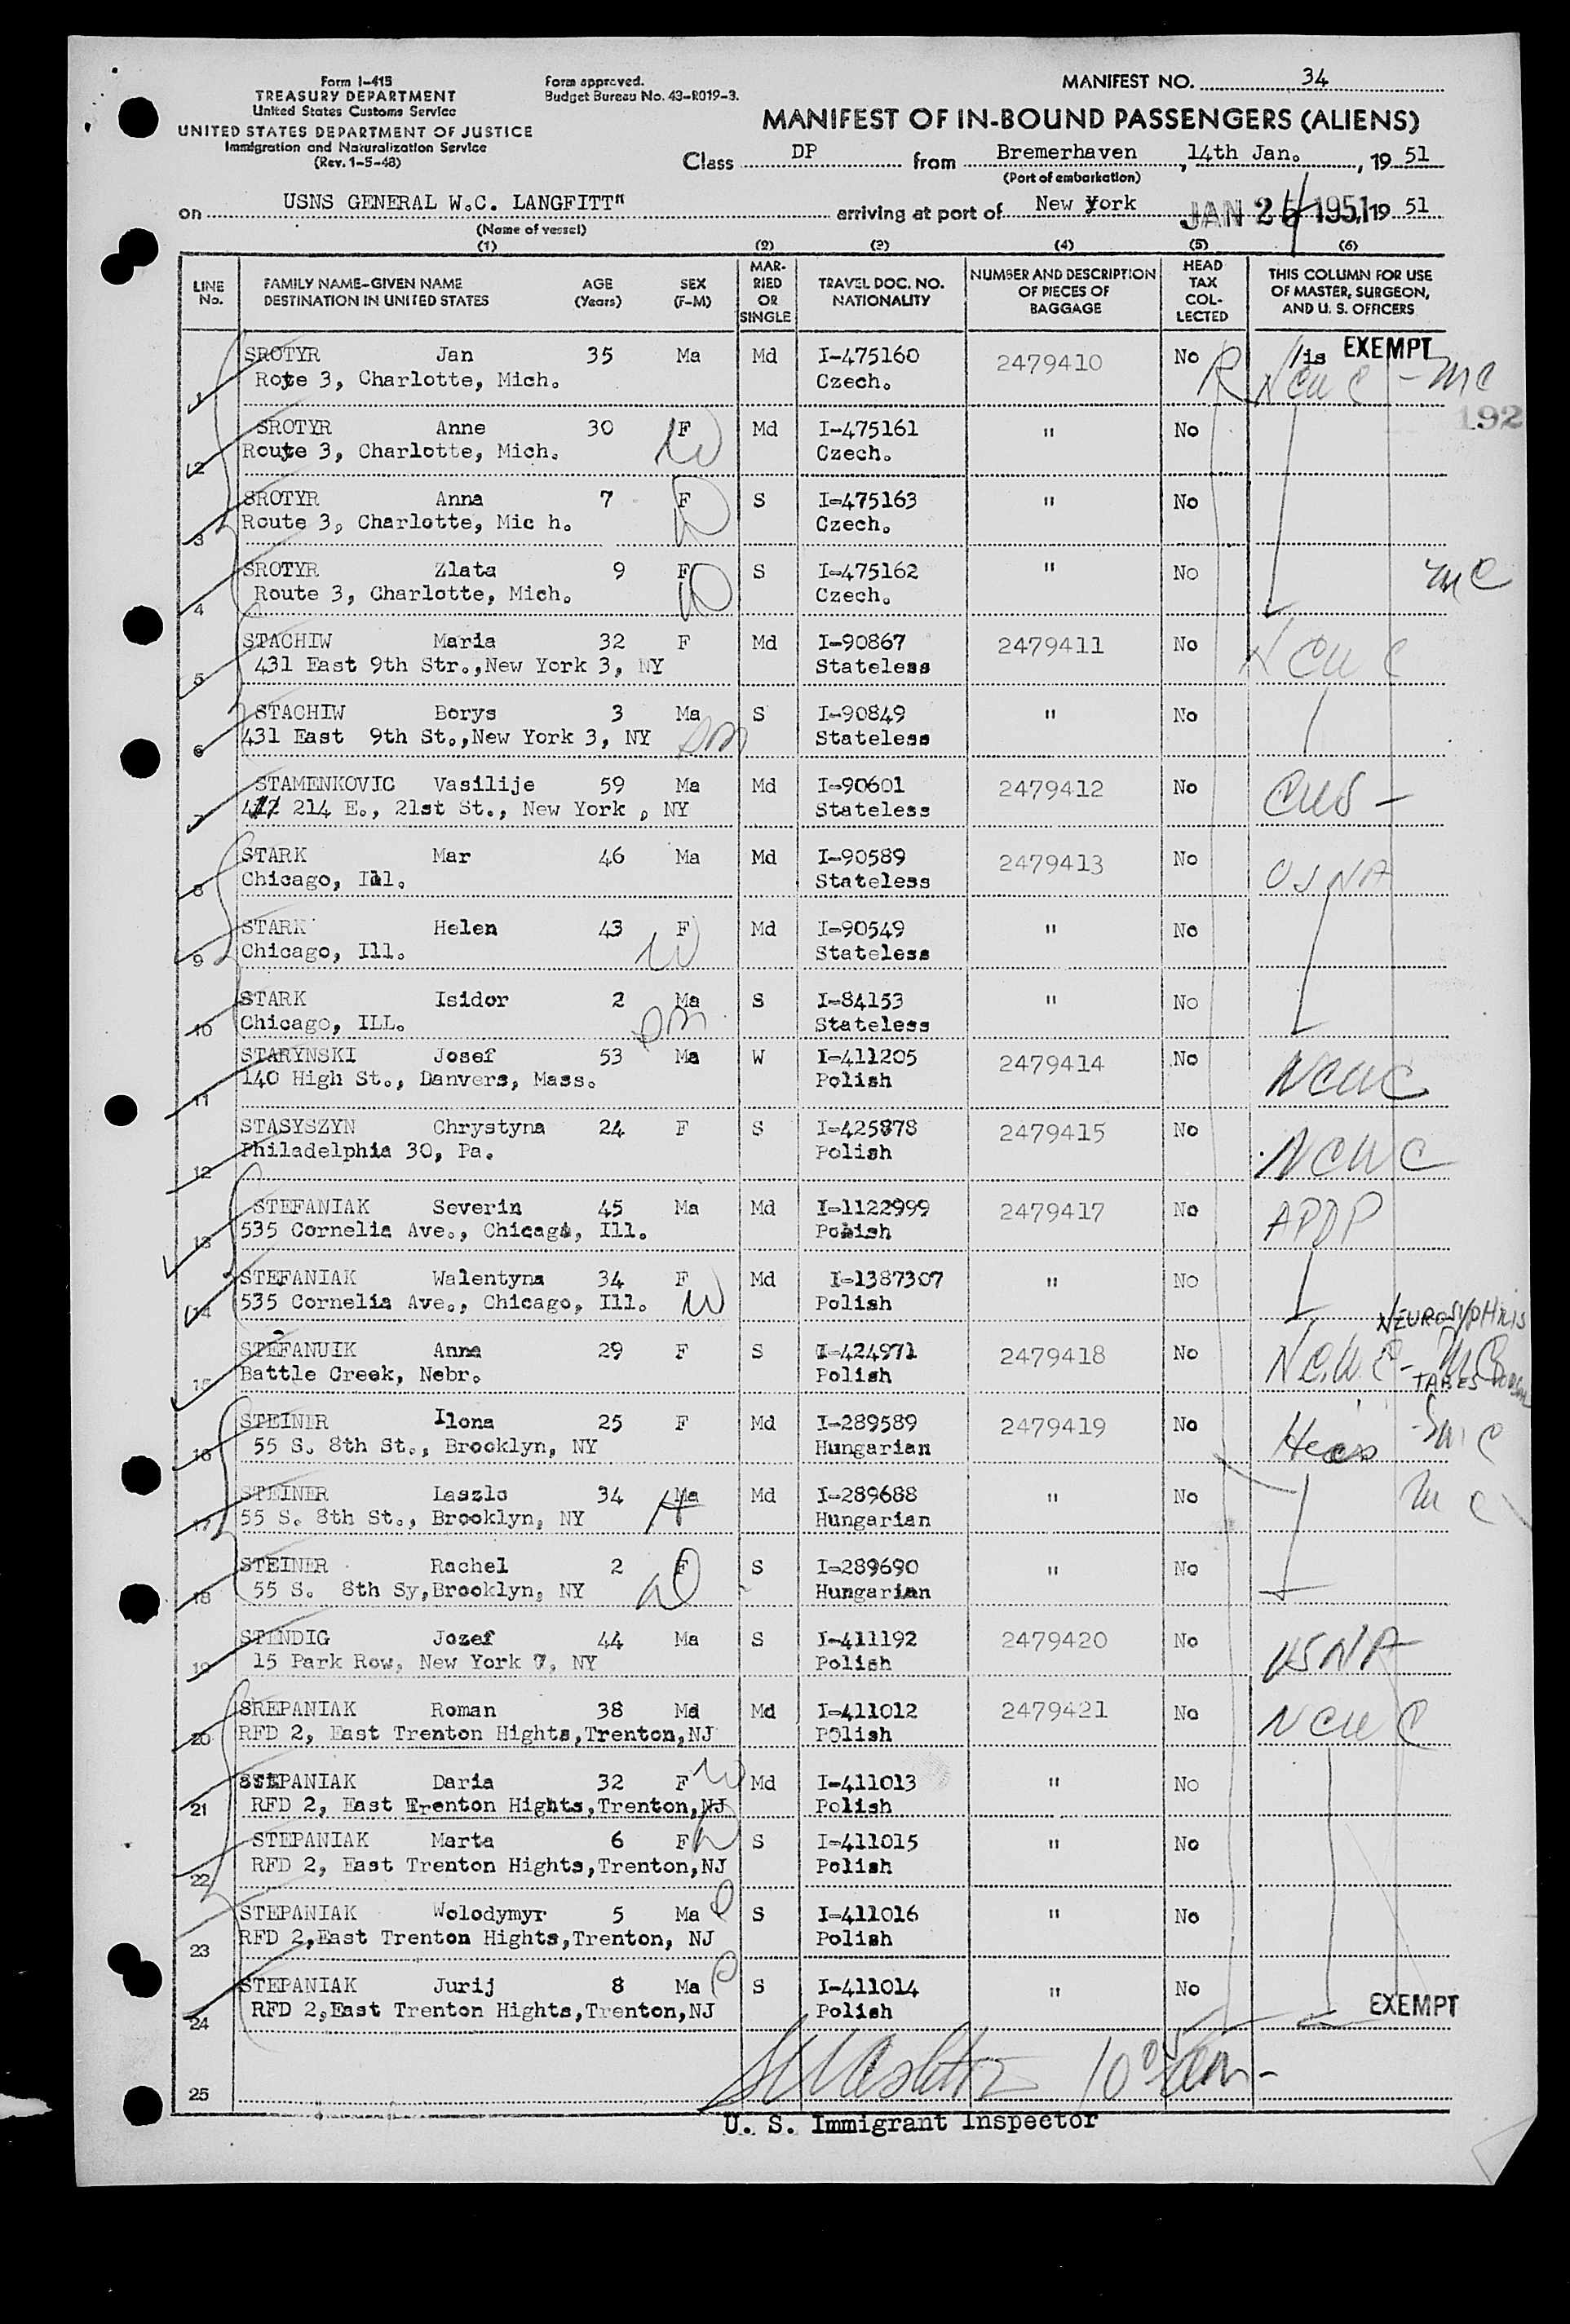 Form I-415
TREASURY DEPARTMENT
United States Customs Service
UNITED STATES DEPARTMENT OF JUSTICE
Immigration and Naturalization Service
(Rev. 1-5-48)
Form approved.
Budget Bureau No. 43-R019-3.
MANIFEST NO. 34
MANIFEST OF IN-BOUND PASSENGERS (ALIENS)
Class DP from Bremerhaven, 14th Jan., 19 51
(Port of embarkation)
on USNS GENERAL W.C. LANGFITT" arriving at port of New York JAN 25 1951, 19 51
(Name of vessel)
(1) (2) (3) (4) (5) (6)
LINE No. FAMILY NAME-GIVEN NAME DESTINATION IN UNITED STATES AGE (Years) SEX (F-M) MARRIED OR SINGLE TRAVEL DOC. NO. NATIONALITY NUMBER AND DESCRIPTION OF PIECES OF BAGGAGE HEAD TAX COLLECTED THIS COLUMN FOR USE OF MASTER, SURGEON, AND U. S. OFFICERS
EXEMPT
1 SROTYR Jan 35 Ma Md I-475160 2479410 No R NCWC - mc
Rote 3, Charlotte, Mich. Czech.
192
2 SROTYR Anne 30 F W Md I-475161 " No
Route 3, Charlotte, Mich. Czech.
3 SROTYR Anna 7 F D S I-475163 " No
Route 3, Charlotte, Mic h. Czech.
4 SROTYR Zlata 9 F D S I-475162 " No mc
Route 3, Charlotte, Mich. Czech.
5 STACHIW Maria 32 F Md I-90867 2479411 No NCWC
431 East 9th Str.,New York 3, NY Stateless
6 STACHIW Borys 3 Ma son S I-90849 " No
431 East 9th St.,New York 3, NY Stateless
7 STAMENKOVIC Vasilije 59 Ma Md I-90601 2479412 No CWS -
214 E., 21st St., New York , NY Stateless
8 STARK Mar 46 Ma Md I-90589 2479413 No USNA
Chicago, Ill. Stateless
9 STARK Helen 43 F W Md I-90549 " No
Chicago, Ill. Stateless
10 STARK Isidor 2 Ma son S I-84153 " No
Chicago, ILL. Stateless
11 STARYNSKI Josef 53 Ma W I-411205 2479414 No NCWC
140 High St., Danvers, Mass. Polish
12 STASYSZYN Chrystyna 24 F S I-425878 2479415 No NCWC
Philadelphia 30, Pa. Polish
13 STEFANIAK Severin 45 Ma Md I-1122999 2479417 No APDP
535 Cornelia Ave., Chicago, Ill. Polish
14 STEFANIAK Walentyna 34 F W Md I-1387307 " No
535 Cornelia Ave., Chicago, Ill. Polish
NEUROSYPHILIS
15 STEFANUIK Anna 29 F S I-424971 2479418 No N.C.W.C - MC
Battle Creek, Nebr. Polish TABES
16 STEINER Ilona 25 F Md I-289589 2479419 No Hias
55 S. 8th St., Brooklyn, NY Hungarian
17 STEINER Laszlo 34 Ma H Md I-289688 " No mc
55 S. 8th St., Brooklyn, NY Hungarian
18 STEINER Rachel 2 F D S I-289690 " No
55 S. 8th Sy,Brooklyn, NY Hungarian
19 STENDIG Jozef 44 Ma S I-411192 2479420 No USNA
15 Park Row, New York 7, NY Polish
20 SREPANIAK Roman 38 Md Md I-411012 2479421 No NCWC
RFD 2, East Trenton Hights,Trenton,NJ POlish
21 STEPANIAK Daria 32 F W Md I-411013 " No
RFD 2, East Erenton Hights,Trenton,NJ Polish
22 STEPANIAK Marta 6 F D S I-411015 " No
RFD 2, East Trenton Hights,Trenton,NJ Polish
23 STEPANIAK Wolodymyr 5 Ma S I-411016 " No
RFD 2,East Trenton Hights,Trenton, NJ Polish
24 STEPANIAK Jurij 8 Ma S I-411014 " No
RFD 2,East Trenton Hights,Trenton,NJ Polish EXEMPT
25
U. S. Immigrant Inspector